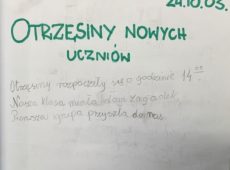 24.10.03.
OTRZĘSINY NOWYCH
UCZNIÓW
Otrzęsiny rozpoczęły się o godzinie 14⁰⁰
Nasza klasa miała zagadek
Pierwsza grupa przyszła do nas